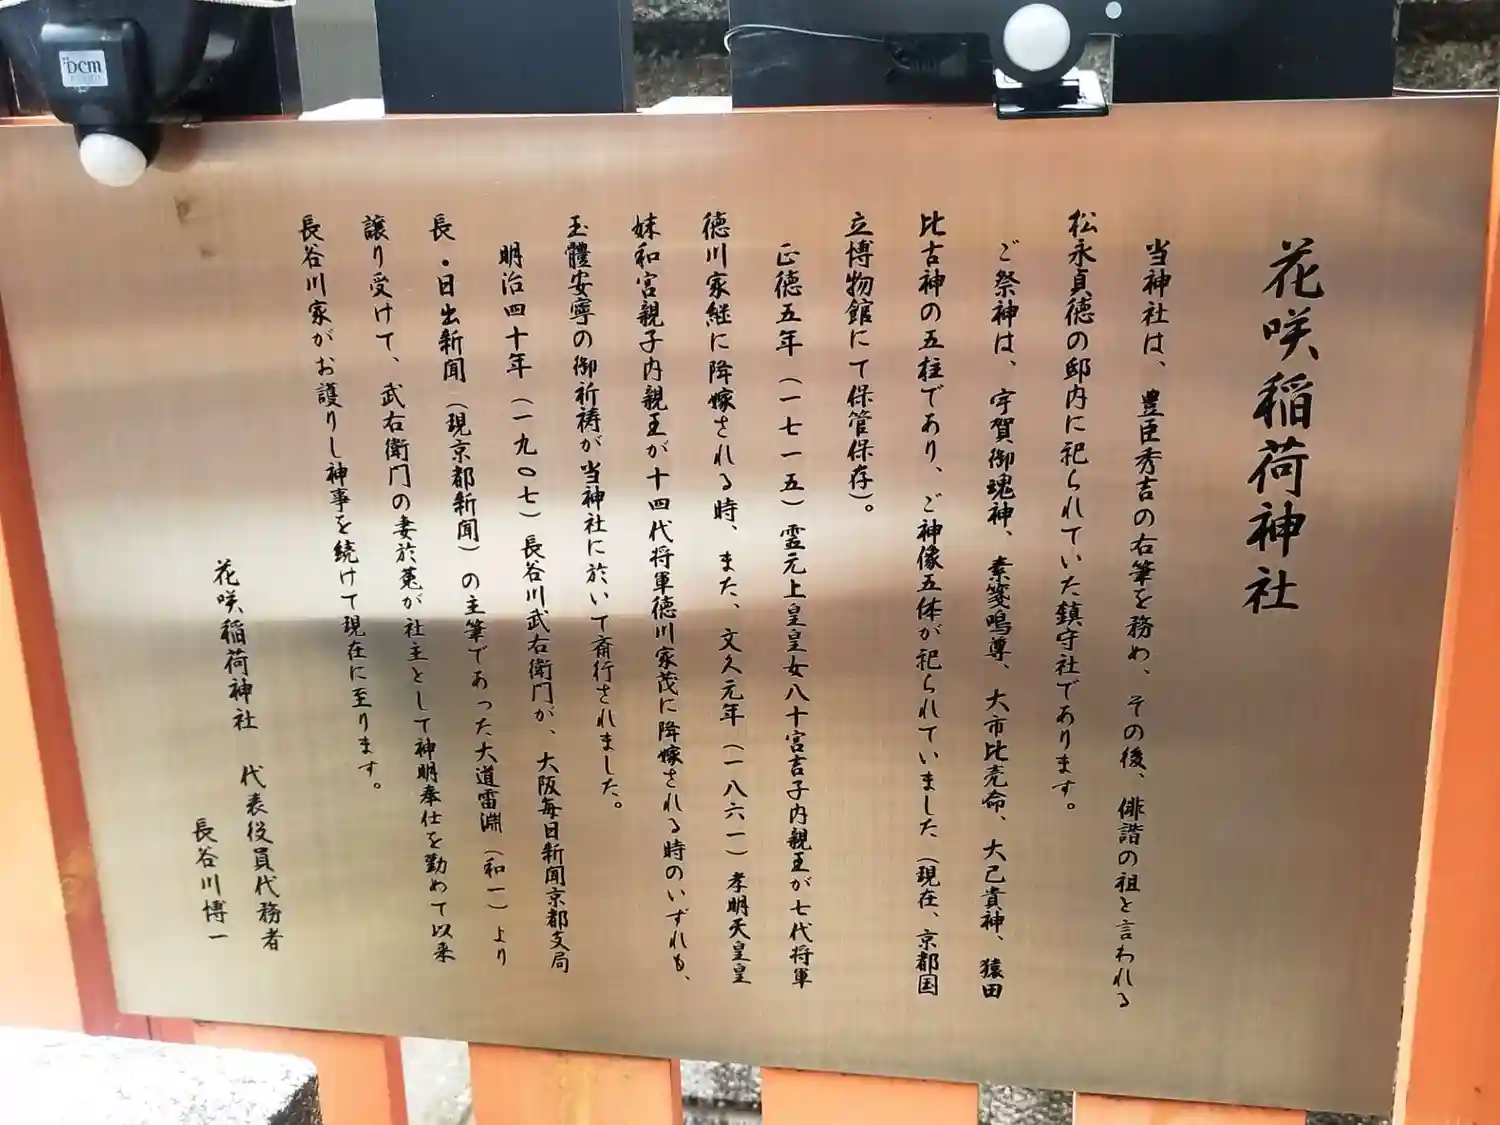 花咲稲荷神社
当神社は、豊臣秀吉の右筆を務め、その後、俳諧の祖と言われる
松永貞徳の邸内に祀られていた鎮守社であります。
ご祭神は、宇賀御魂神、素箋鳴尊、大市比売命、大己貴神、猿田
比古神の五柱であり、ご神像五体が祀られていました(現在、京都国
立博物館にて保管保存)。
正徳五年(一七一五)霊元上皇皇女八十宮吉子内親王が七代将軍
徳川家継に降嫁される時、また、文久元年(一八六一)孝明天皇皇
妹和宮親子内親王が十四代将軍徳川家茂に降嫁される時のいずれも、
玉體安寧の御祈祷が当神社に於いて斎行されました。
明治四十年(一九〇七)長谷川武右衛門が、大阪毎日新聞京都支局
長・日出新聞(現京都新聞)の主筆であった大道雷淵(和一)より
譲り受けて、武右衛門の妻於菟が社主として神明奉仕を勤めて以来
長谷川家がお護りし神事を続けて現在に至ります。
花咲稲荷神社 代表役員代務者
長谷川博一
DCM